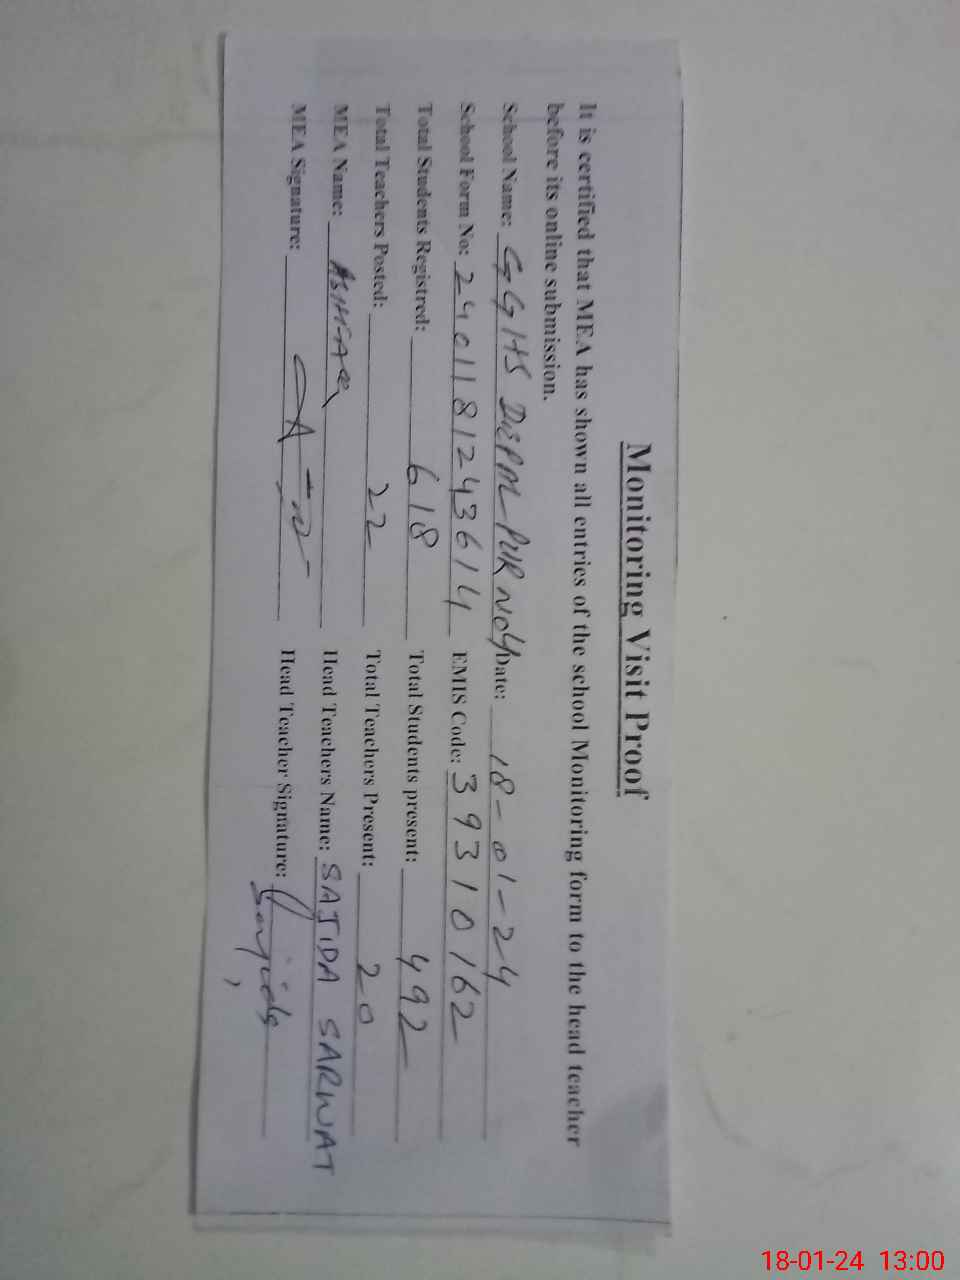 Monitoring Visit Proof
It is certified that MEA has shown all entries of the school Monitoring form to the head teacher
before its online submission.
School Name: GGHS DEPAL PUR NO4 Date: 18-01-24
School Form No: 240118124 36614 EMIS Code: 39310162
Total Students Registred: 618 Total Students present: 492
Total Teachers Posted: 22 Total Teachers Present: 20
MEA Name: ASHFAQ Head Teachers Name: SAJIDA SARWAT
MEA Signature: Head Teacher Signature: Sajida
18-01-24 13:00